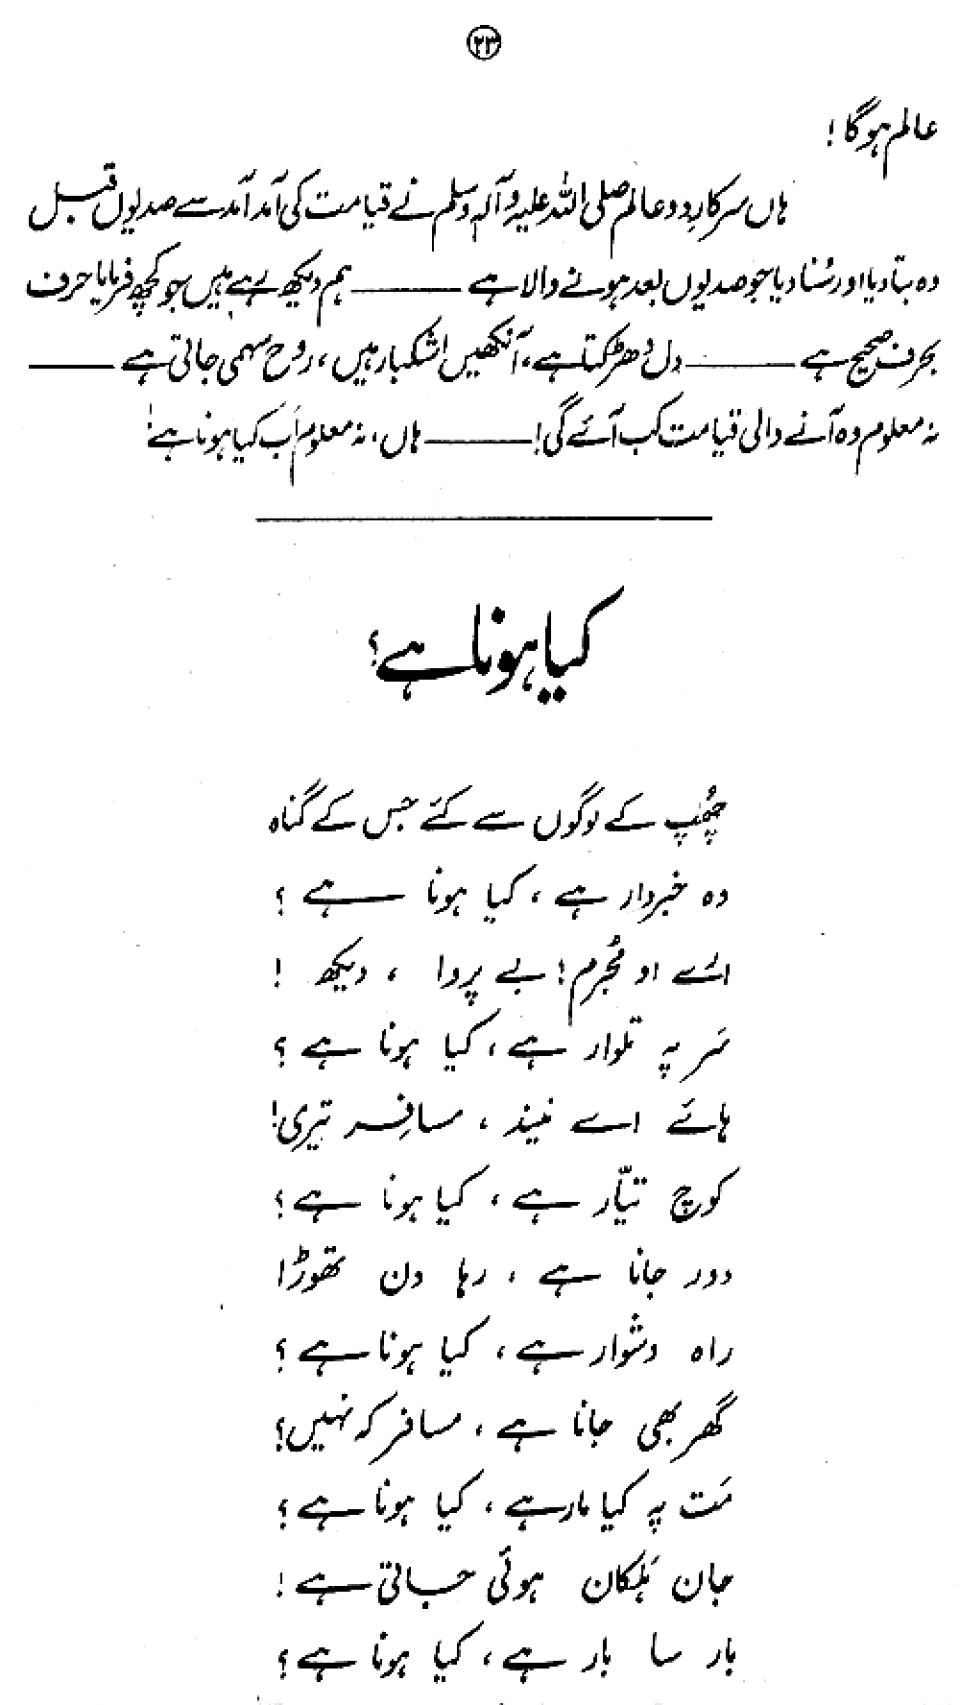 ۲۳
عالم ہوگا!
ہاں سرکارِ دو عالم صلی اللہ علیہ وآلہ وسلم نے قیامت کی آمد آمد سے صدیوں قبل
وہ بتا دیا اور سُنا دیا جو صدیوں بعد ہونے والا ہے ——— ہم دیکھ رہے ہیں جو کچھ فرمایا حرف
بحرف صحیح ہے ——— دل دھڑکتا ہے، آنکھیں اشکبار ہیں، روح سہمی جاتی ہے ———
نہ معلوم وہ آنے والی قیامت کب آئے گی! ——— ہاں، نہ معلوم اَب کیا ہونا ہے!
کیا ہونا ہے؟
چُھپ کے لوگوں سے کئے جس کے گناہ
وہ خبردار ہے، کیا ہونا ہے؟
ارے او مُجرم! بے پروا، دیکھ!
سَر پہ تلوار ہے، کیا ہونا ہے؟
ہائے اے نیند، مسافِر تیری!
کوچ تیّار ہے، کیا ہونا ہے؟
دور جانا ہے، رہا دن تھوڑا
راہ دشوار ہے، کیا ہونا ہے؟
گھر بھی جانا ہے، مسافر کہ نہیں؟
مَت پہ کیا مار ہے، کیا ہونا ہے؟
جان ہَلکان ہوئی جاتی ہے!
بار سا بار ہے، کیا ہونا ہے؟